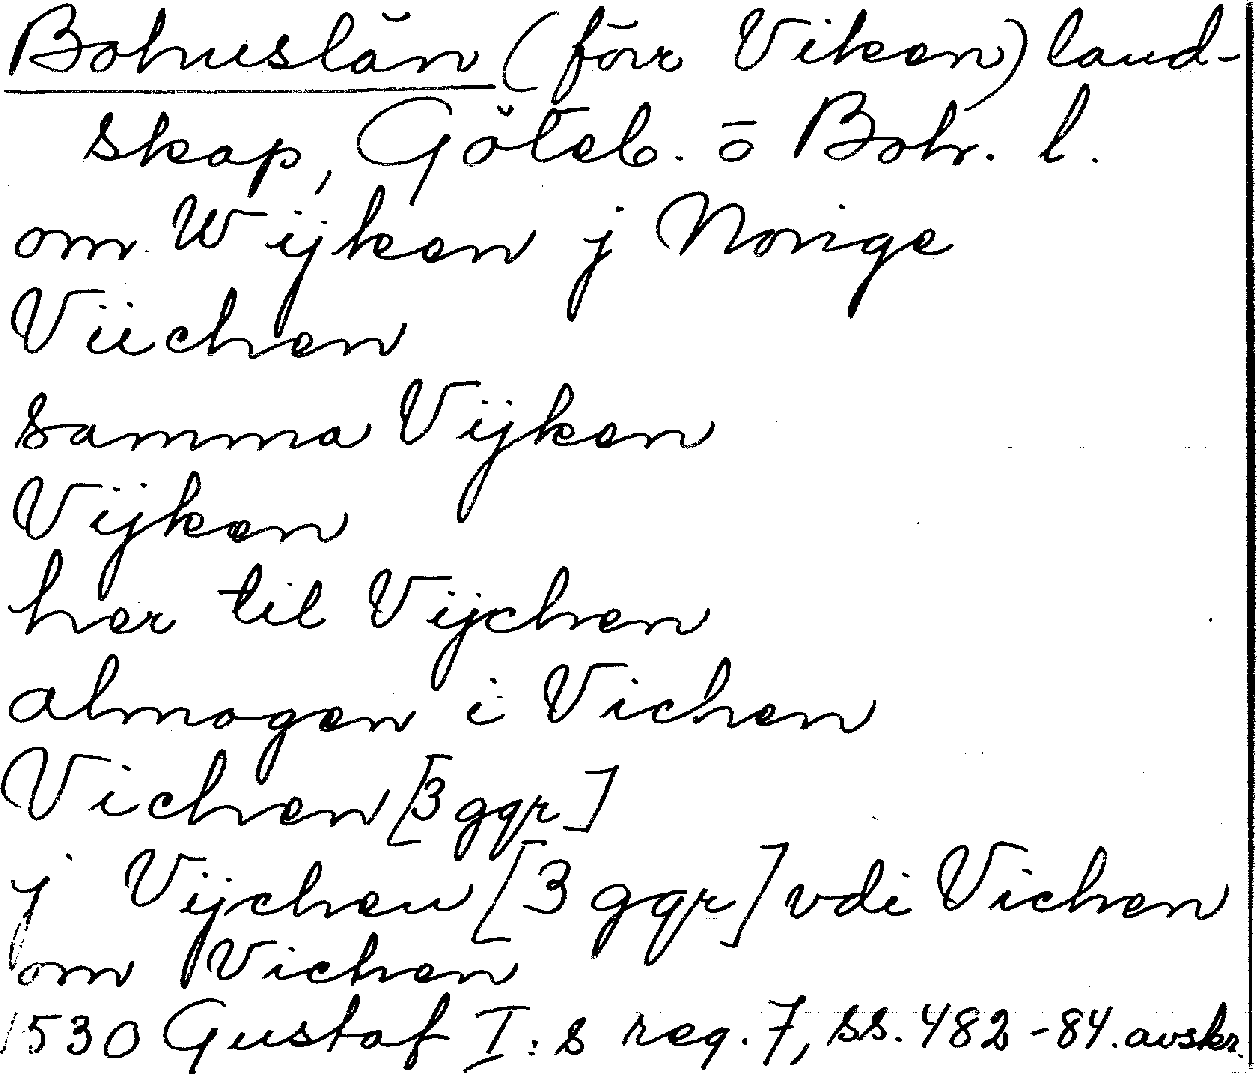 Bohuslän (förr Viken) land-
skap, Göteb. o Boh. l.
om Wijken j Norige
Viichen
samma Vijken
Vijken
her til Vijchen
almogen i Vichen
Vichen [3 ggr]
j Vijchen [3 ggr] vdi Vichen
om Vichen
1530 Gustaf I:s reg. 7, ss. 482-84. avskr.